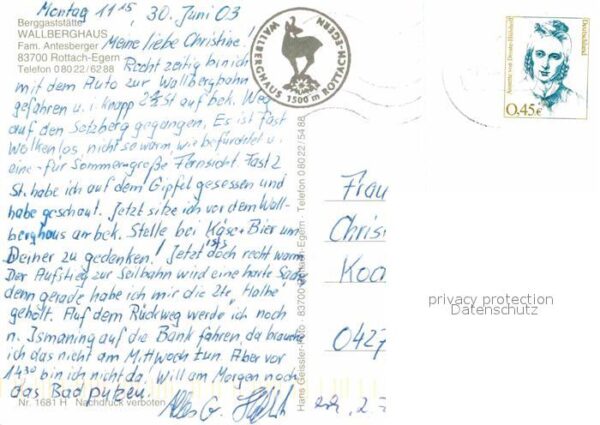 Montag 11¹⁵, 30. Juni 03
Berggaststätte
WALLBERGHAUS
Fam. Antesberger
83700 Rottach-Egern
Telefon 0 80 22 / 62 88
Meine liebe Christine!
Recht zeitig bin ich
mit dem Auto zur Wallbergbahn
gefahren u. i. knapp St auf bek. Weg
auf den Setzberg gegangen. Es ist fast
Wolkenlos, nicht so warm wie befürchtet u.
eine - für Sommer - große Fernsicht. Fast 2
St. habe ich auf dem Gipfel gesessen und
habe geschaut. Jetzt sitze ich vor dem Wall-
berghaus an bek. Stelle bei Käse + Bier um
Deiner zu gedenken! Jetzt ists doch recht warm
Der Aufstieg zur Seilbahn wird eine harte Sache
denn gerade habe ich mir die 2te Halbe
geholt. Auf dem Rückweg werde ich noch
n. Ismaning auf die Bank fahren, da brauche
ich das nicht am Mittwoch tun. Aber vor
14³⁰ bin ich nicht da! Will am Morgen noch
das Bad putzen.
Alles G.
Nr. 1681 H Nachdruck verboten
WALLBERGHAUS ROTTACH-EGERN
1500 m
Hans Geissler-Foto · 83700 Rottach-Egern · Telefon 0 80 22 / 54 88
Annette von Droste-Hülshoff
Deutschland
0,45€
Frau
Chris
Koa
0427
privacy protection
Datenschutz